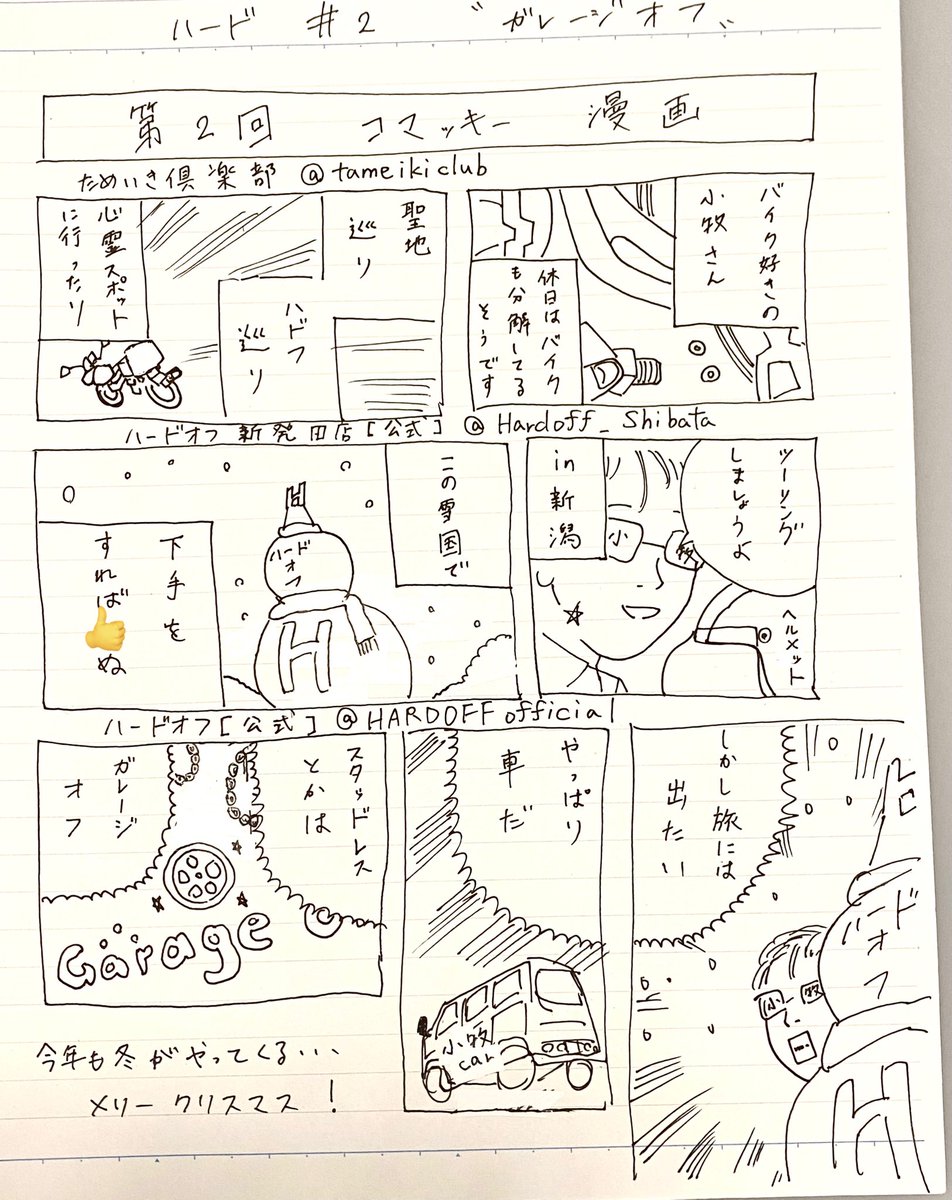 ハード #2 “ガレージオフ”
第2回 コマッキー 漫画
ためいき倶楽部 @tameikiclub
バイク好きの
小牧さん
休日はバイク
も分解してる
そうです
聖地
巡り
ハドフ
巡り
心霊スポット
に行ったり
ハードオフ新発田店[公式] @Hardoff_Shibata
ツーリング
しましょうよ
in新潟
小
牧
ヘルメット
この雪国で
H
ハード
オフ
H
下手を
すれば👍ぬ
ハードオフ[公式] @HARDOFFofficial
しかし旅には
出たい
小
牧
ハード
オフ
H
やっぱり
車だ
小牧
car
スタッドレス
とかは
ガレージ
オフ
Garage
今年も冬がやってくる...
メリークリスマス!